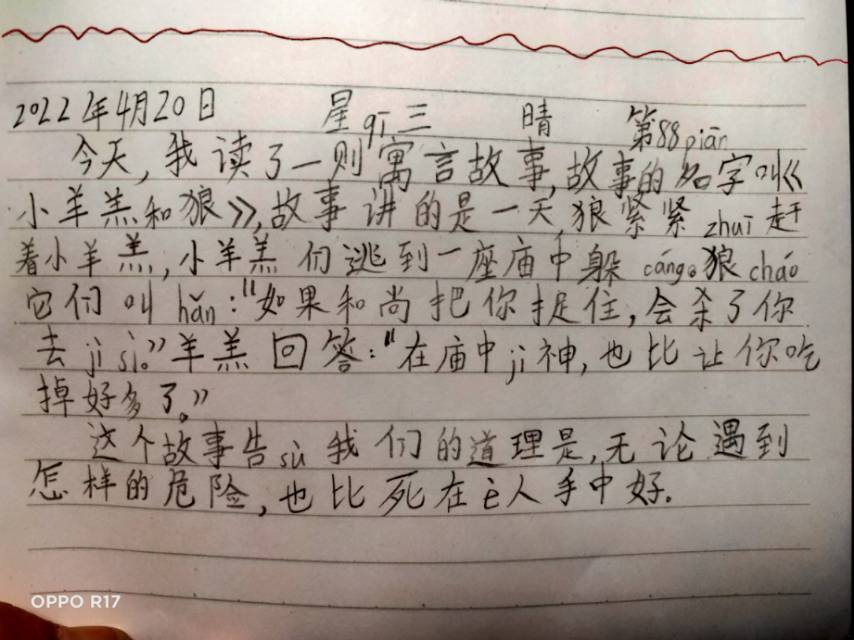 2022年4月20日 星qī三 晴 第88piān
今天,我读了一则寓言故事,故事的名字叫《
小羊羔和狼》,故事讲的是一天,狼紧紧zhuī赶
着小羊羔,小羊羔们逃到一座庙中躲cáng。狼cháo
它们叫hǎn:"如果和尚把你捉住,会杀了你
去jì sì。"羊羔回答:"在庙中jì神,也比让你吃
掉好多了。"
这个故事告sù我们的道理是,无论遇到
怎样的危险,也比死在人手中好.
OPPO R17